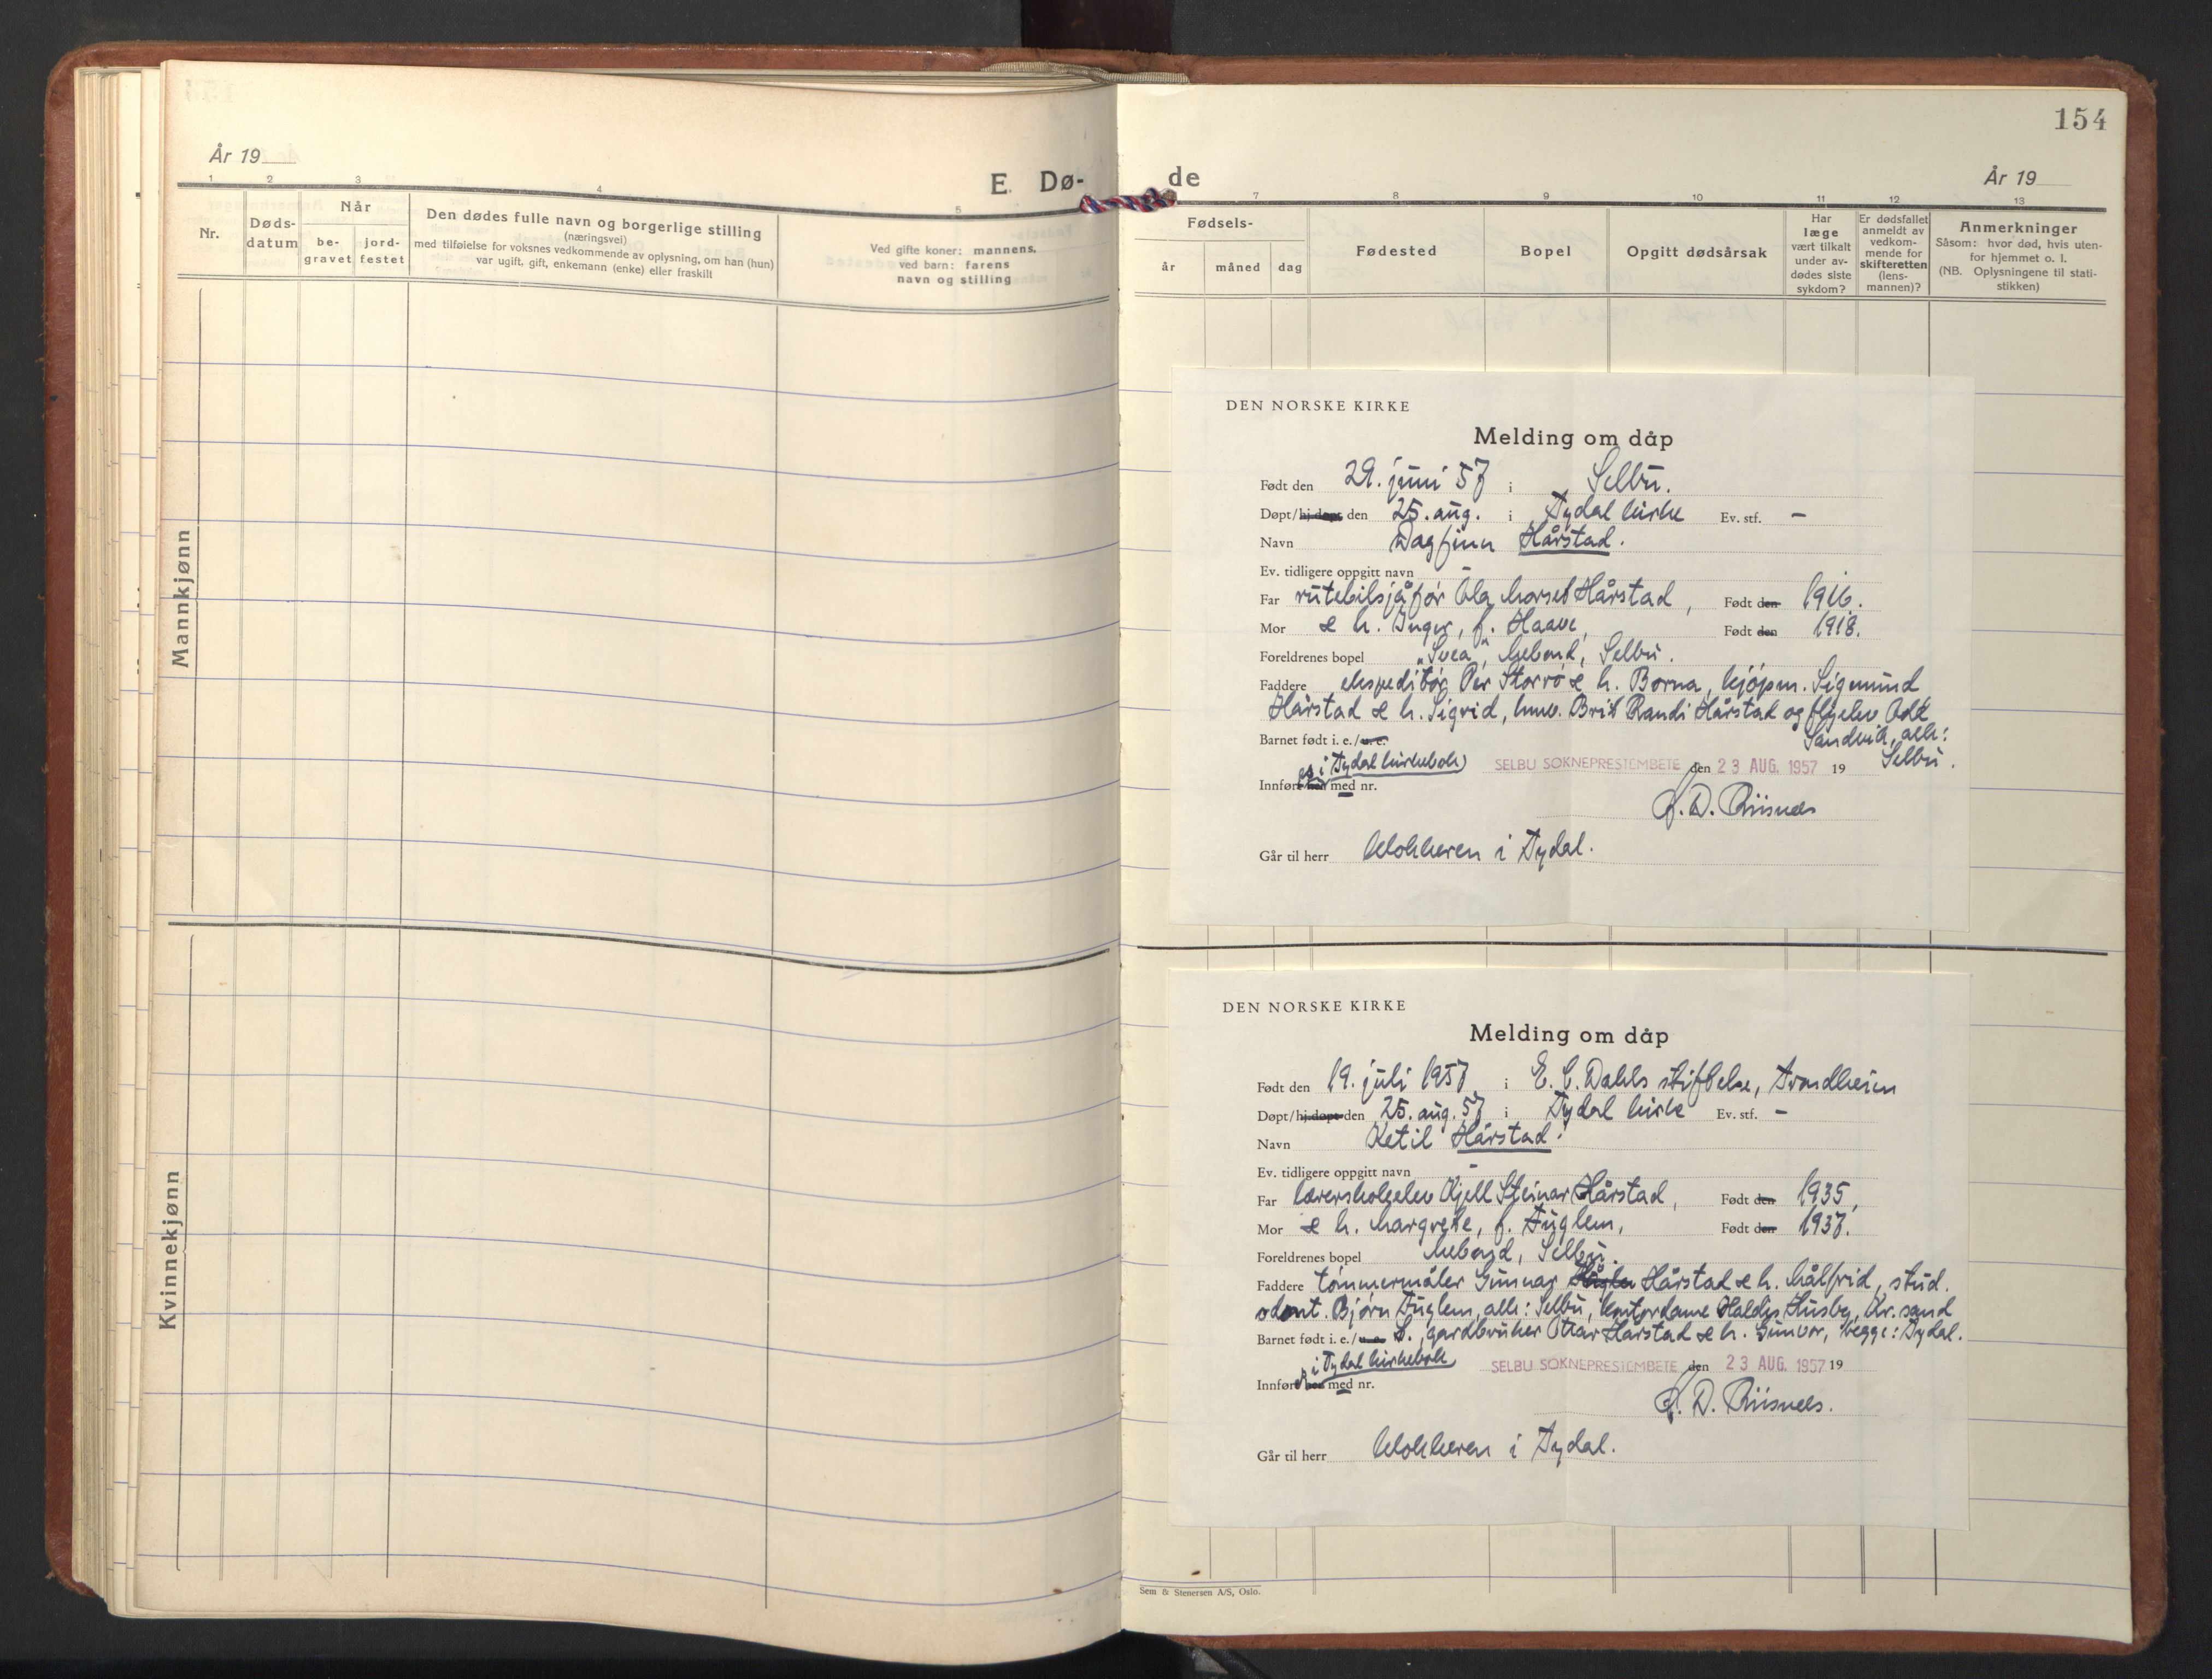 År 19
E. Dø-
1 2 3 4 5
Nr.
Døds-
datum
Når
be-
gravet
jord-
festet
Den dødes fulle navn og borgerlige stilling
(næringsvei)
med tilføielse for voksnes vedkommende av oplysning, om han (hun)
var ugift, gift, enkemann (enke) eller fraskilt
Ved gifte koner: mannens,
ved barn: farens
navn og stilling
Mannkjønn
Kvinnekjønn
154
de
År 19
7 8 9 10 11 12 13
Fødsels-
år
måned
dag
Fødested
Bopel
Opgitt dødsårsak
Har
læge
vært tilkalt
under av-
dødes siste
sykdom?
Er dødsfallet
anmeldt av
vedkom-
mende for
skifteretten
(lens-
mannen)?
Anmerkninger
Såsom: hvor død, hvis uten-
for hjemmet o. l.
(NB. Oplysningene til stati-
stikken)
DEN NORSKE KIRKE
Melding om dåp
Født den 29. juni 57 i Selbu.
Døpt/hj.døpt den 25. aug. i Tydal kirke Ev. stf. -
Navn Dagfinn Hårstad.
Ev. tidligere oppgitt navn -
Far rutebilsjåfør Ola Morset Hårstad, Født den 1916.
Mor & h. Inger, f. Haave, Født den 1918.
Foreldrenes bopel "Svea", Mebond, Selbu.
Faddere ekspeditør Per Storrø & h. Borna, kjøpm. Sigmund
Hårstad & h. Sigrid, hmv. Brit Randi Hårstad og flyelev Odd
Sandvik, alle:
Barnet født i. e./u. e. Selbu.
i Tydal kirkebok
SELBU SOKNEPRESTEMBETE den 23 AUG. 1957 19
Innført her med nr.
D. Riisnes
Går til herr Klokkeren i Tydal.
DEN NORSKE KIRKE
Melding om dåp
Født den 19. juli 1957 i E. C. Dahls stiftelse, Trondheim
Døpt/hj.døpt den 25. aug. 57 i Tydal kirke Ev. stf. -
Navn Ketil Hårstad.
Ev. tidligere oppgitt navn -
Far lærerskoleelev Kjell Steinar Hårstad, Født den 1935,
Mor & h. Margrete, f. Fuglem, Født den 1937.
Foreldrenes bopel Mebond, Selbu.
Faddere tømmermåler Gunnar Hårstad & h. Målfrid, stud.
odont. Bjørn Fuglem, alle: Selbu, kontordame Haldis Husby, Kr. sand
Barnet født i. e./u. e. S., gardbruker Ottar Hårstad & h. Gunvor, begge: Tydal.
i Tydal kirkebok
SELBU SOKNEPRESTEMBETE den 23 AUG. 1957 19
Innført her med nr.
D. Riisnes.
Går til herr Klokkeren i Tydal.
Sem & Stenersen A/S, Oslo.